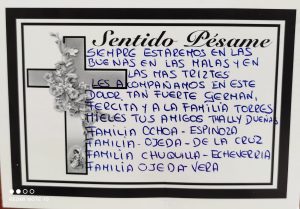 Sentido Pésame
SIEMPRE ESTAREMOS EN LAS
BUENAS EN LAS MALAS Y EN
LAS MAS TRIZTES
LES ACOMPAÑAMOS EN ESTE
DOLOR TAN FUERTE GERMAN,
TERCITA Y A LA FAMILIA TORRES
MIELES TUS AMIGOS THALLY DUEÑAS
FAMILIA OCHOA - ESPINOZA
FAMILIA - OJEDA - DE LA CRUZ
FAMILIA CHUQUILLA - ECHEVERRIA
FAMILIA OJEDA VERA